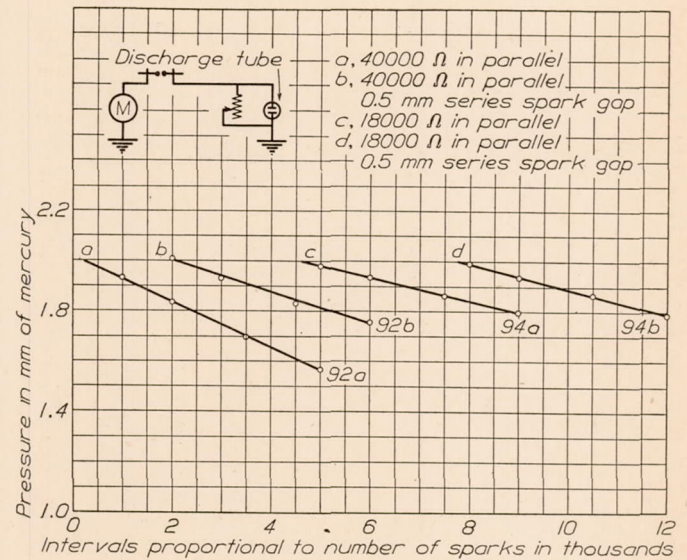 Discharge tube
M
a, 40000 Ω in parallel
b, 40000 Ω in parallel
0.5 mm series spark gap
c, 18000 Ω in parallel
d, 18000 Ω in parallel
0.5 mm series spark gap
Pressure in mm of mercury
2.2
1.8
1.4
1.0
a
b
c
d
92a
92b
94a
94b
0
2
4
6
8
10
12
Intervals proportional to number of sparks in thousands